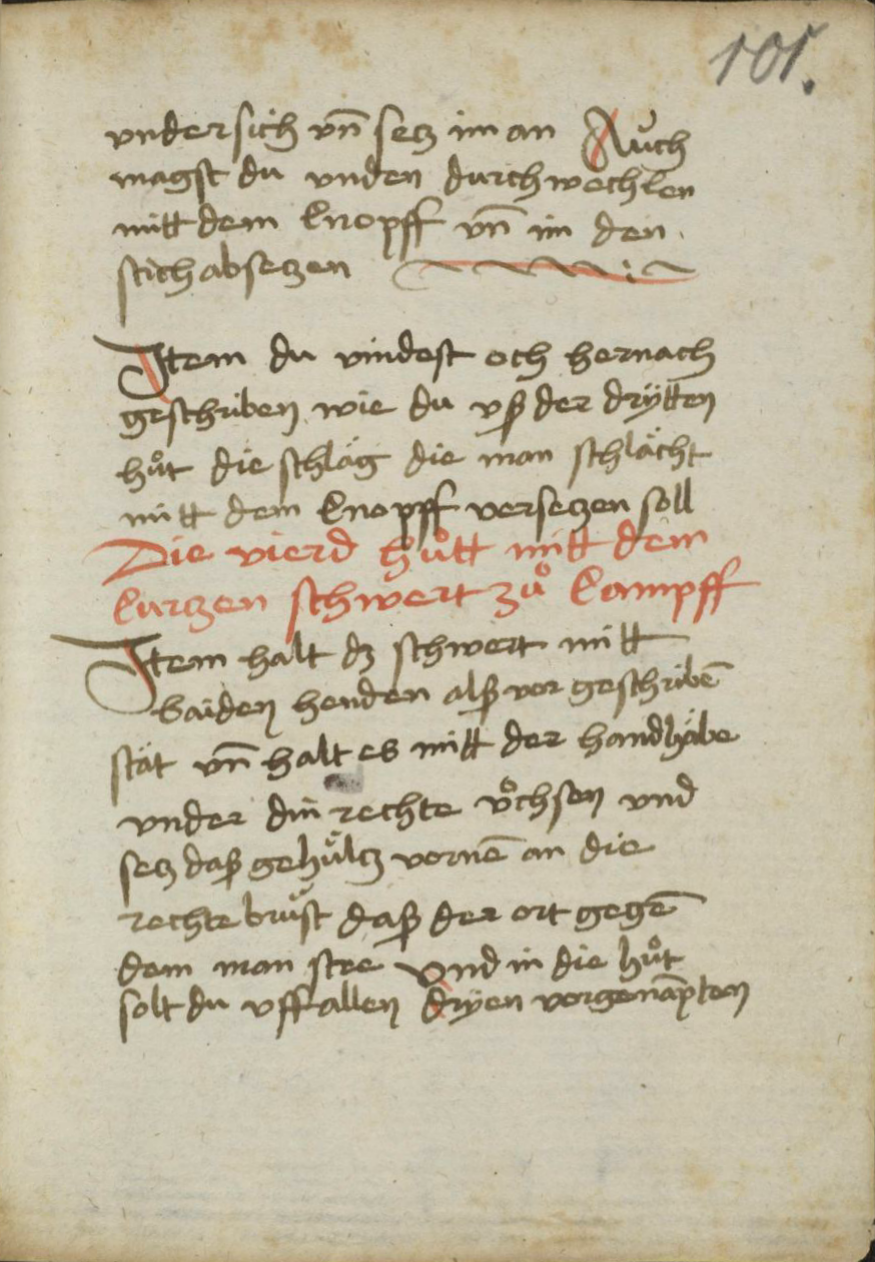 101.
vndersich vn̄ setz im an Auͦch
magst du vnden durchwechslen
mitt dem knopff vn̄ im den
stich absetzen
Item du vindest och hernach
geschriben wie du vß der drÿtten
huͦt die schläg die man schlächt
mitt dem knopff versetzen soll
Die vierd huͦtt mitt dem
kurtzen schwert zuͦ kampff
Item halt dz schwert mitt
baiden henden alß vor geschribē
stät vn̄ halt es mitt der handhäbe
vnder din rechte vͦchsen vnd
setz daß gehültz vornē an die
rechte bruͦst daß der ort gegē
dem man stee Vnd in die huͦt
solt du vff allen drÿen vorgenāpten